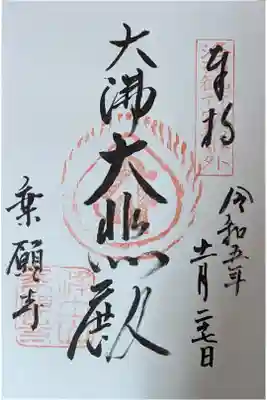 奉拝
大佛大照殿
令和五年
十一月二七日
乗願寺